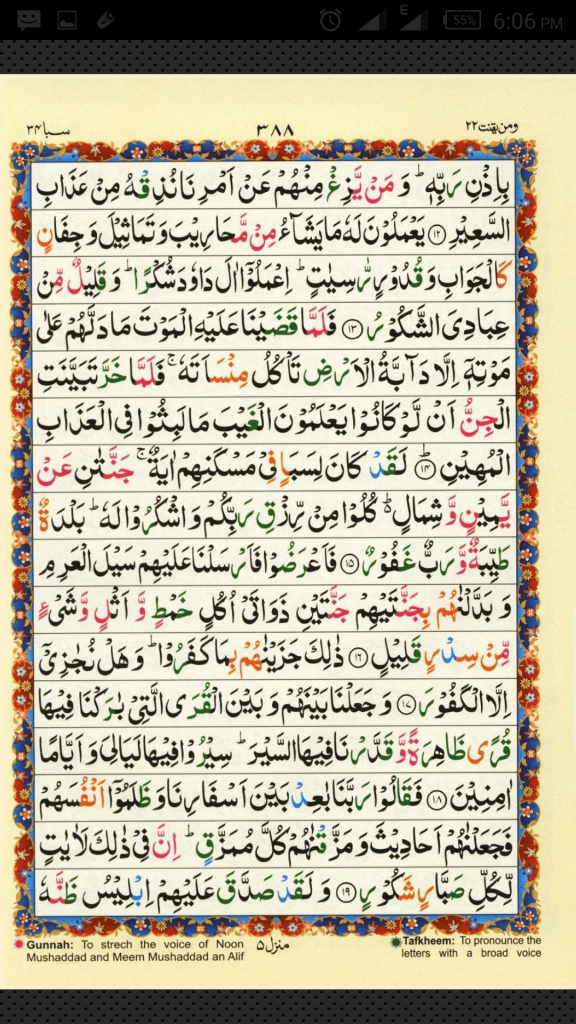 E 55% 6:06 PM
ومن یقنت ۲۲ ۳۸۸ سبا ۳۴
بِاِذْنِ رَبِّهٖ ؕ وَ مَنْ يَّزِغْ مِنْهُمْ عَنْ اَمْرِنَا نُذِقْهُ مِنْ عَذَابِ
السَّعِيْرِ ﴿۱۲﴾ يَعْمَلُوْنَ لَهٗ مَا يَشَآءُ مِنْ مَّحَارِيْبَ وَ تَمَاثِيْلَ وَ جِفَانٍ
كَالْجَوَابِ وَ قُدُوْرٍ رّٰسِيٰتٍ ؕ اِعْمَلُوْۤا اٰلَ دَاوٗدَ شُكْرًا ؕ وَ قَلِيْلٌ مِّنْ
عِبَادِيَ الشَّكُوْرُ ﴿۱۳﴾ فَلَمَّا قَضَيْنَا عَلَيْهِ الْمَوْتَ مَا دَلَّهُمْ عَلٰى
مَوْتِهٖۤ اِلَّا دَآبَّةُ الْاَرْضِ تَاْكُلُ مِنْسَاَتَهٗ ۚ فَلَمَّا خَرَّ تَبَيَّنَتِ
الْجِنُّ اَنْ لَّوْ كَانُوْا يَعْلَمُوْنَ الْغَيْبَ مَا لَبِثُوْا فِى الْعَذَابِ
الْمُهِيْنِ ﴿۱۴﴾ؕ لَقَدْ كَانَ لِسَبَاٍ فِيْ مَسْكَنِهِمْ اٰيَةٌ ۚ جَنَّتٰنِ عَنْ
يَّمِيْنٍ وَّ شِمَالٍ ؕ۬ كُلُوْا مِنْ رِّزْقِ رَبِّكُمْ وَ اشْكُرُوْا لَهٗ ؕ بَلْدَةٌ
طَيِّبَةٌ وَّ رَبٌّ غَفُوْرٌ ﴿۱۵﴾ فَاَعْرَضُوْا فَاَرْسَلْنَا عَلَيْهِمْ سَيْلَ الْعَرِمِ
وَ بَدَّلْنٰهُمْ بِجَنَّتَيْهِمْ جَنَّتَيْنِ ذَوَاتَيْ اُكُلٍ خَمْطٍ وَّ اَثْلٍ وَّ شَيْءٍ
مِّنْ سِدْرٍ قَلِيْلٍ ﴿۱۶﴾ ذٰلِكَ جَزَيْنٰهُمْ بِمَا كَفَرُوْا ؕ وَ هَلْ نُجٰزِيْۤ
اِلَّا الْكَفُوْرَ ﴿۱۷﴾ وَ جَعَلْنَا بَيْنَهُمْ وَ بَيْنَ الْقُرَى الَّتِيْ بٰرَكْنَا فِيْهَا
قُرًى ظَاهِرَةً وَّ قَدَّرْنَا فِيْهَا السَّيْرَ ؕ سِيْرُوْا فِيْهَا لَيَالِيَ وَ اَيَّامًا
اٰمِنِيْنَ ﴿۱۸﴾ فَقَالُوْا رَبَّنَا بٰعِدْ بَيْنَ اَسْفَارِنَا وَ ظَلَمُوْۤا اَنْفُسَهُمْ
فَجَعَلْنٰهُمْ اَحَادِيْثَ وَ مَزَّقْنٰهُمْ كُلَّ مُمَزَّقٍ ؕ اِنَّ فِيْ ذٰلِكَ لَاٰيٰتٍ
لِّكُلِّ صَبَّارٍ شَكُوْرٍ ﴿۱۹﴾ وَ لَقَدْ صَدَّقَ عَلَيْهِمْ اِبْلِيْسُ ظَنَّهٗ
Gunnah: To strech the voice of Noon منزل ۵ Tafkheem: To pronounce the
Mushaddad and Meem Mushaddad an Alif letters with a broad voice